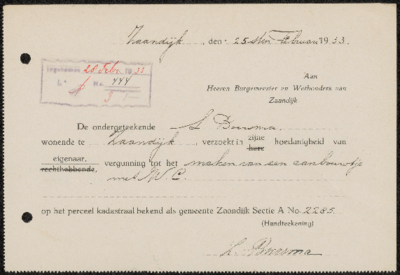 Zaandijk, den 25sten Februari 1933.
Ingekomen 28 Febr. 1933
No. 444
Aan
Heeren Burgemeester en Wethouders van
Zaandijk
De ondergeteekende L. Boersma.
wonende te Zaandijk verzoekt in zijne hoedanigheid van
hare
eigenaar, vergunning tot het maken van een aanbouwtje
rechthebbende,
met W.C.
op het perceel kadastraal bekend als gemeente Zaandijk Sectie A No. 2285.
(Handteekening)
L. Boersma